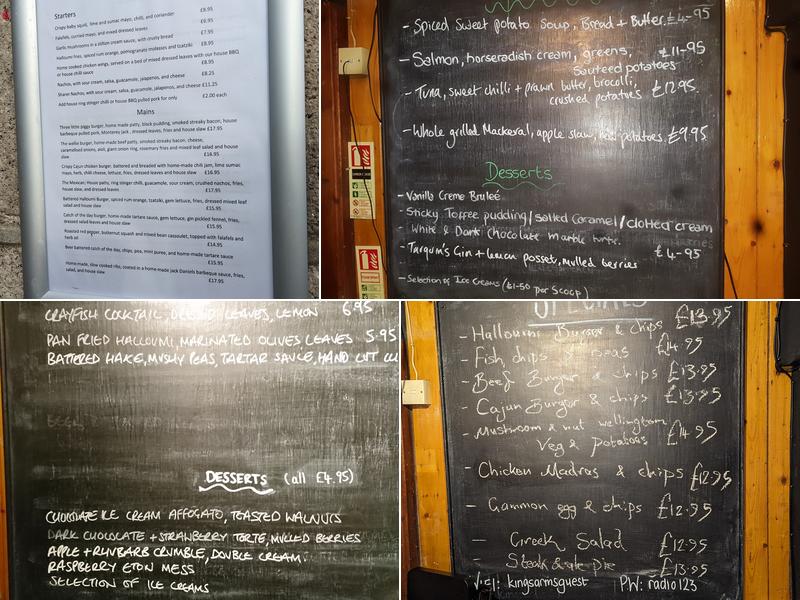 Starters
Crispy baby squid, lime and sumac mayo, chilli, and coriander £8.95
Falafels, curried mayo, and mixed dressed leaves £6.95
Garlic mushrooms in a stilton cream sauce, with crusty bread £7.95
Halloumi fries, spiced rum orange, pomegranate molasses and tzatziki £8.95
Home cooked chicken wings, served on a bed of mixed dressed leaves with our house BBQ
or house chilli sauce £8.95
Nachos, with sour cream, salsa, guacamole, jalapenos, and cheese £8.25
Sharer Nachos, with sour cream, salsa, guacamole, jalapenos, and cheese £11.25
Add house ring stinger chilli or house BBQ pulled pork for only £2.00 each
Mains
Three little piggy burger, home made patty, black pudding, smoked streaky bacon, house
barbeque pulled pork, Monterey jack, dressed leaves, fries and house slaw £17.95
The wallie burger, home-made beef patty, smoked streaky bacon, cheese,
caramelised onions, aioli, giant onion ring, rosemary fries and mixed leaf salad and house
slaw £16.95
Crispy Cajun chicken burger, battered and breaded with home-made chilli jam, lime sumac
mayo, herb, chilli cheese, lettuce, fries, dressed leaves and house slaw £16.95
The Mexican; House patty, ring stinger chilli, guacamole, sour cream, crushed nachos, fries,
house slaw, and dressed leaves £17.95
Battered Halloumi Burger, spiced rum orange, tzatziki, gem lettuce, fries, dressed mixed leaf
salad and house slaw £15.95
Catch of the day burger, home-made tartare sauce, gem lettuce, gin pickled fennel, fries,
dressed salad leaves and house slaw £15.95
Roasted red pepper, butternut squash and mixed bean cassoulet, topped with falafels and
herb oil £14.95
Beer battered catch of the day, chips, pea, mint puree, and home-made tartare sauce
£15.95
Home-made, slow cooked ribs, coated in a home-made Jack Daniels barbeque sauce, fries,
salad, and house slaw £17.95
- Spiced Sweet potato Soup, Bread + Butter. £4-95
- Salmon, horseradish cream, greens, £11-95
Sauteed potatoes
- Tuna, sweet chilli + prawn butter, brocolli,
crushed potatoes £12.95
- Whole grilled Mackeral, apple slaw, potatoes. £9.95
Desserts
- Vanilla Creme Brulee
- Sticky Toffee pudding/salted caramel/clotted cream
- White & Dark Chocolate marble torte.
- Tarquin's Gin + lemon posset, mulled berries £4-95
- Selection of Ice Creams (£1-50 per Scoop)
CRAYFISH COCKTAIL, DRESSED LEAVES, LEMON 6.95
PAN FRIED HALLOUMI, MARINATED OLIVES LEAVES 5.95
BATTERED HAKE, MUSHY PEAS, TARTAR SAUCE, HAND CUT
DESSERTS (all £4.95)
CHOCOLATE ICE CREAM AFFOGATO, TOASTED WALNUTS
DARK CHOCOLATE + STRAWBERRY TORTE, MULLED BERRIES
APPLE + RHUBARB CRUMBLE, DOUBLE CREAM.
RASPBERRY ETON MESS
SELECTION OF ICE CREAMS
SPECIALS
- Halloumi Burger & chips £13.95
- Fish chips & peas £14.95
- Beef Burger & chips £13.95
- Cajun Burger & chips £13.95
- Mushroom & nut wellington
Veg & Potatoes £14.95
- Chicken Madras & chips £12.95
- Gammon egg & chips £12.95
- Greek Salad £12.95
- Steak & ale Pie £13.95
Wifi: kingsarmsguest PW: radio123